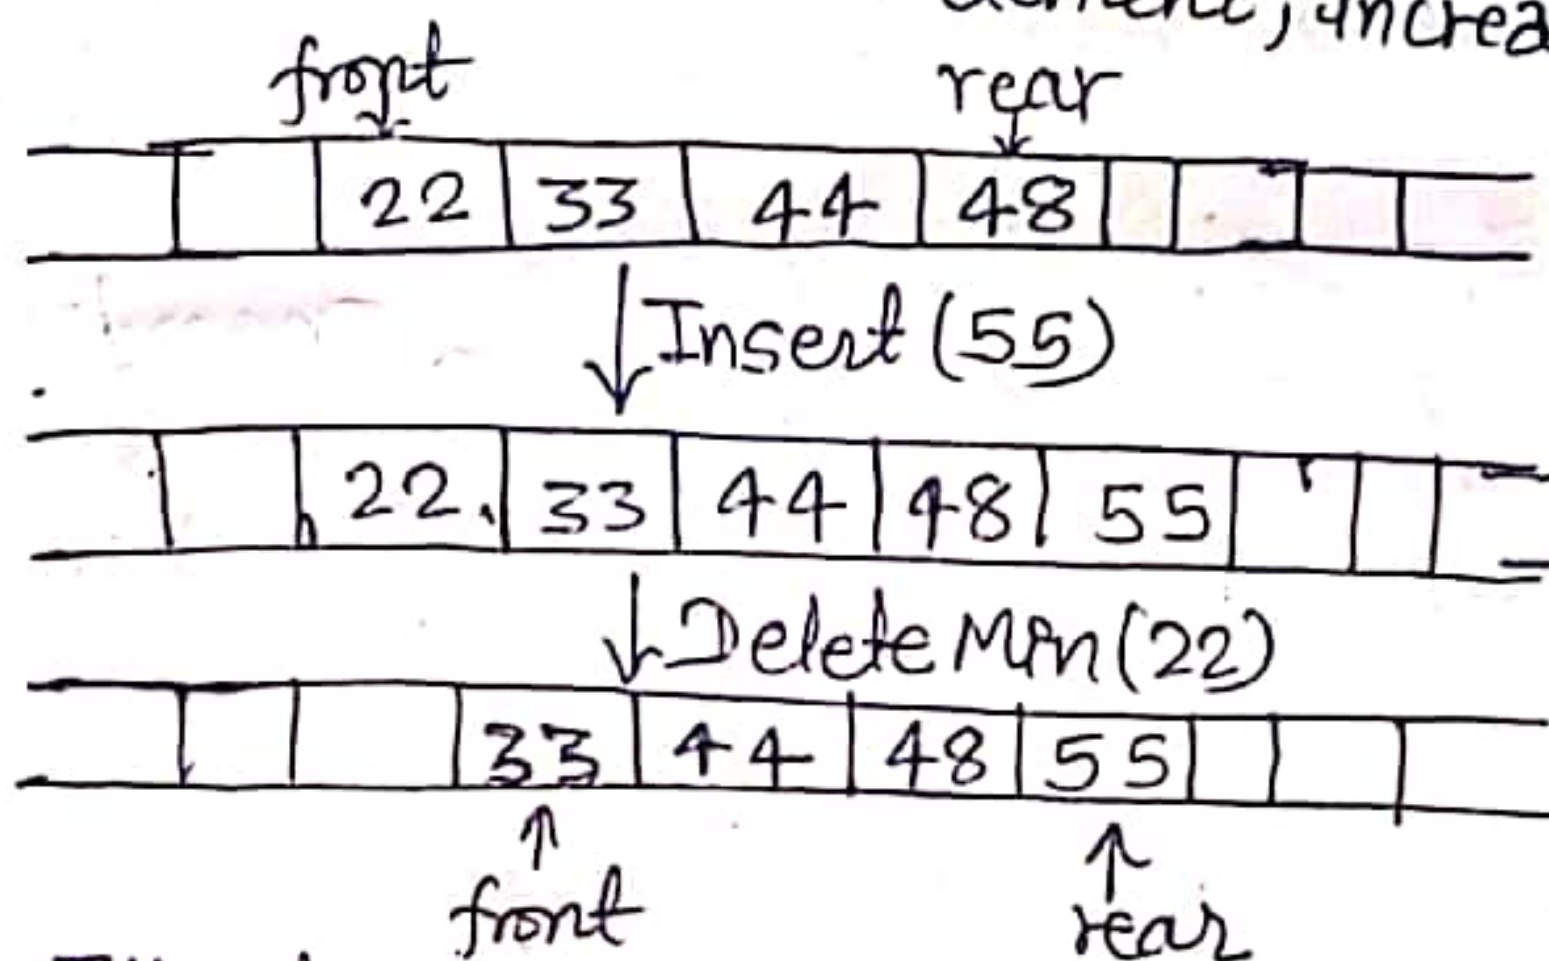 front rear
22 33 44 48
Insert (55)
22 33 44 48 55
Delete Min (22)
33 44 48 55
front rear